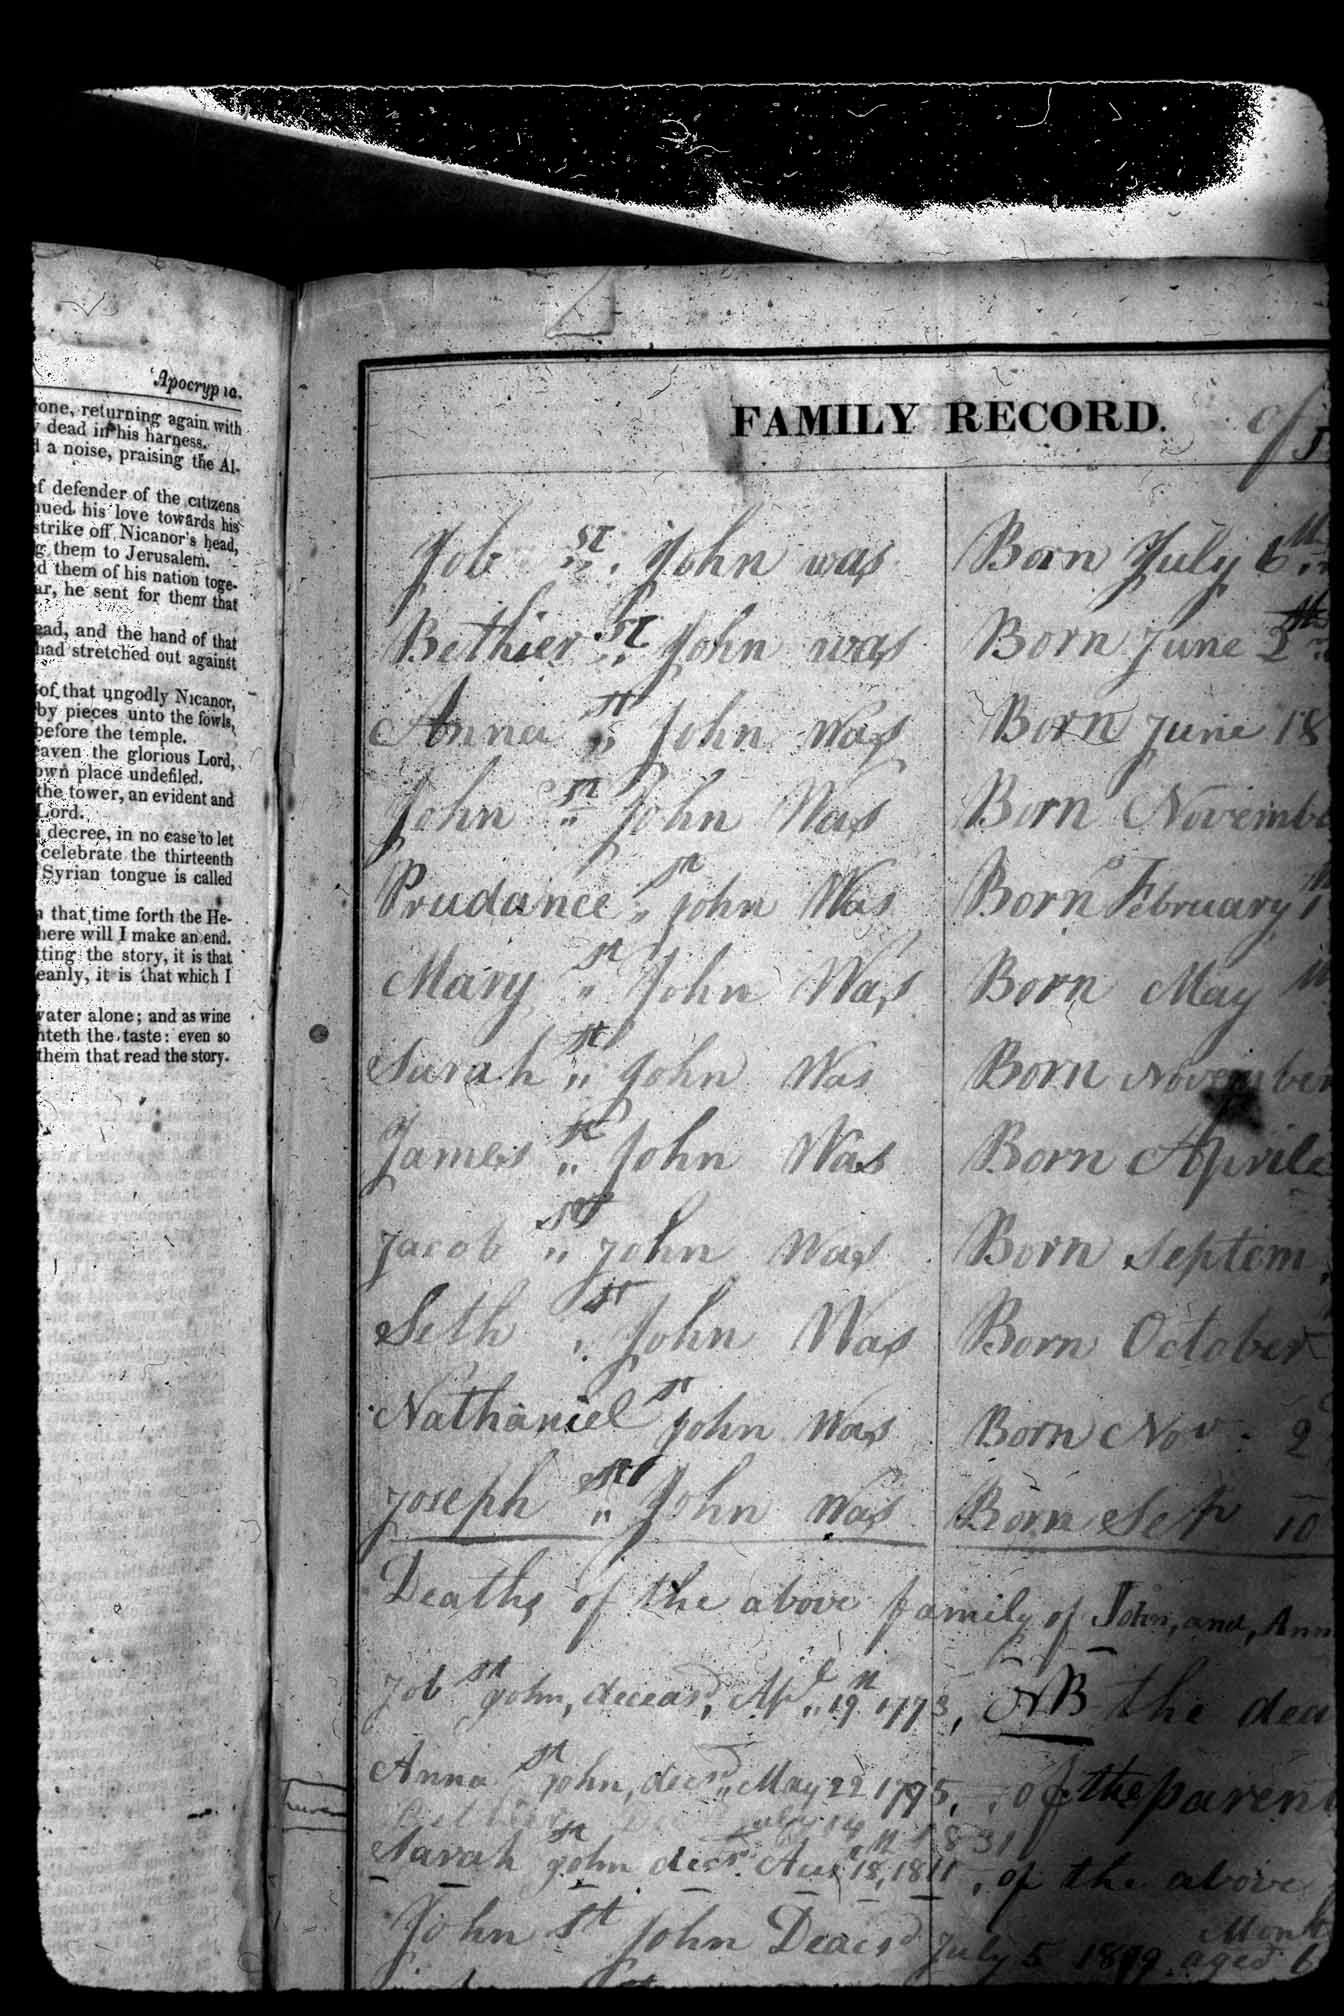 Apocryp
one, returning again with
dead in his harness.
a noise, praising the Al-
defender of the citizens
his love towards his
strike off Nicanor's head,
them to Jerusalem.
them of his nation toge-
he sent for them that
and the hand of that
had stretched out against
of that ungodly Nicanor,
by pieces unto the fowls,
before the temple.
the glorious Lord,
own place undefiled.
the tower, an evident and
Lord.
decree, in no case to let
celebrate the thirteenth
Syrian tongue is called
that time forth the He-
here will I make an end.
the story, it is that
it is that which I
water alone; and as wine
the taste: even so
them that read the story.
FAMILY RECORD. of
Job St. John was Born July 6th
Bethier St. John was Born June 2
Anna St John Was Born June 18
John St John Was Born Novemb
Prudance St John Was Born February 1
Mary St John Was Born May
Sarah St John Was Born November
James St John Was Born Aprile
Jacob St John Was Born Septem
Seth St John Was Born October
Nathaniel St John Was Born Nov. 2
Joseph St John Was Born Sept 10
Deaths of the above family of John, and, Ann
Job St John, deceasd, Apl 19th 1773, NB the dea
Anna St John, decsd, May 22 1795, of the parent
July 14th 1831
Sarah St John decsd. Aug 18, 1811, of the above
John St John Deacsd July 5 aged 6
Month